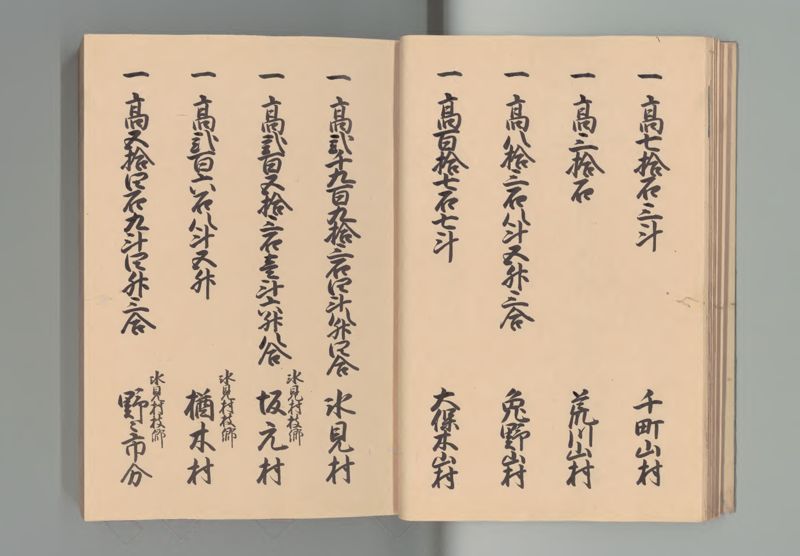 一 高七拾石三斗 千町山村
一 高三拾石 荒川山村
一 高八拾三石八斗五升三合 兎野山村
一 高百拾七石七斗 大保木山村
一 高弐千九百九拾三石四斗八升四合 氷見村
一 高弐百五拾三石壱斗六升八合 氷見村枝郷 坂元村
一 高弐百六石八斗五升 氷見村枝郷 楢木村
一 高五拾四石九斗四升三合 氷見村枝郷 野々市分